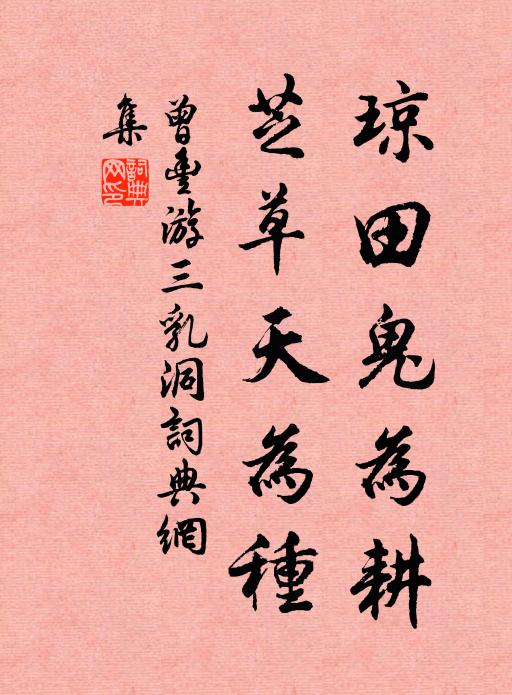 琼田鬼為耕
芝草天為種
曾豐游三乳洞詞典網
集
詞典網印